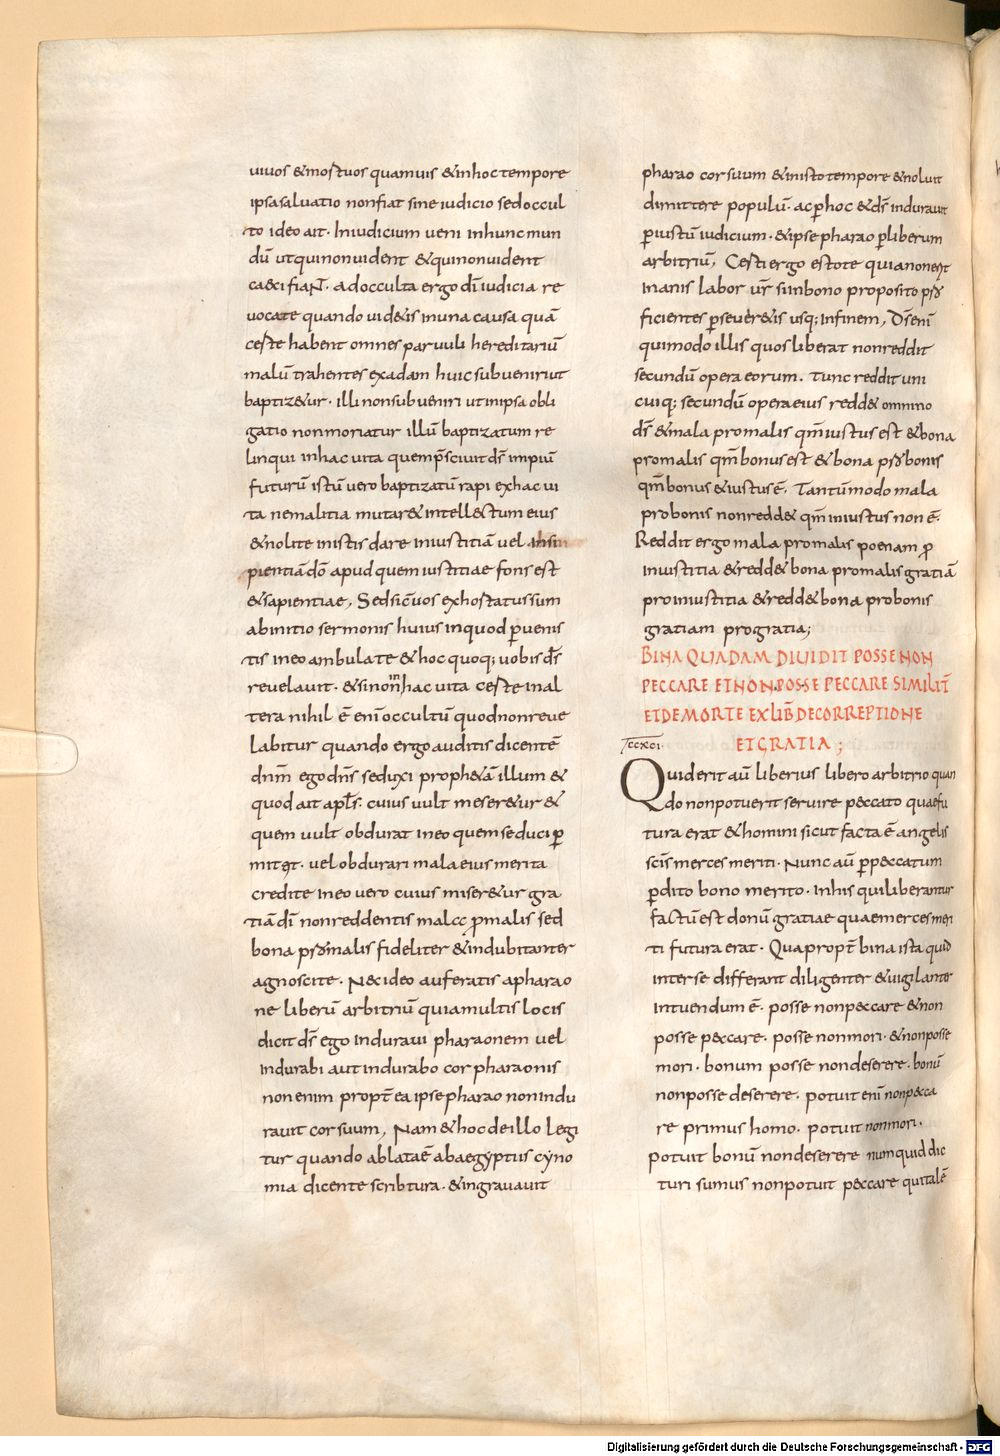 uiuos & mortuos quamuis & inhoc tempore
ipsa saluatio non fiat sine iudicio sed occul
to ideo ait · Iniudicium ueni inhunc mun
dū ut qui non uident & qui non uident
caeci fiant · ad occulta ergo dī iudicia re
uocate quando uid&is inuna causa quā
certe habent omnes paruuli hereditariū
malū trahentes exadam huic subueniri ut
baptiz&ur · illi non subueniri ut inipsa obli
gatio non moriatur illū baptizatum re
linqui inhac uita quem p̄sciuit dš impiū
futurū istū uero baptizatū rapi ex hac ui
ta ne malitia mutar& intellectum eius
& nolite inistis dare iniustitiā uel insi
pientiā dō apud quem iustitiae fons est
& sapientiae, Sed sic uos exhortatus sum
ab initio sermonis huius inquod peruenis
tis ineo ambulate & hoc quoq; uobis dš
reuelauit · & si non in hac uita certe inal
tera nihil ē enī occultū quod non reue
labitur quando ergo auditis dicentē
dnm̄ ego dn̄s seduxi proph&ā illum &
quod ait apls̄ · cuius uult miser&ur &
quem uult obdurat ineo quem seduci p
mittit · uel obdurari mala eius merita
credite ineo uero cuius miser&ur gra
tiā dī non reddentis mala p malis sed
bona p malis fideliter & indubitanter
agnoscite · Nec ideo auferatis apharao
ne liberū arbitriū quia multis locis
dicit dš ego induraui pharaonem uel
indurabi aut indurabo cor pharaonis
non enim propt̄ ea ipse pharao non indu
rauit cor suum, Nam & hoc de illo legi
tur quando ablata ē abaegyptiis cyno
mia dicente scribtura · & ingrauauit
pharao cor suum & inisto tempore & noluit
dimittere populū · ac p hoc & dš indurauit
p iustū iudicium · & ipse pharao p liberum
arbitriū, Certi ergo estote quia non erit
inanis labor ur̄ si inbono proposito pro
ficientes perseuer&is usq; infinem, Dš enī
qui modo illis quos liberat non reddit
secundū opera eorum · Tunc reddit uni
cuiq; secundū opera eius redd& omnino
dš & mala pro malis qm̄ iustus est & bona
pro malis qm̄ bonus est & bona pro bonis
qm̄ bonus & iustus ē · Tantūmodo mala
pro bonis non redd& qm̄ iniustus non ē ·
Reddit ergo mala pro malis poenam p
iniustitia & redd& bona pro malis gratiā
pro iniustitia & redd& bona pro bonis
gratiam pro gratia;
BINA QUAEDAM DIUIDIT POSSE NON
PECCARE ET NON POSSE PECCARE SIMILIT̄
ET DE MORTE EX LIB̄ DE CORREPTIONE
ET GRATIA ;
CCXCI ·
Quid erit aū liberius libero arbitrio quan
do non potuerit seruire peccato quae fu
tura erat & homini sicut facta ē angelis
scīs merces meriti · Nunc aū p peccatum
pdito bono merito · inhis qui liberantur
factū est donū gratiae quae merces meri
ti futura erat · Quapropt̄ bina ista quid
inter se differant diligenter & uigilanter
intuendum ē · posse non peccare & non
posse peccare · posse non mori · & non posse
mori · bonum posse non deserere · bonū
non posse deserere · potuit enī non pecca
re primus homo · potuit non mori ·
potuit bonū non deserere numquid dic
turi sumus non potuit peccare qui talē
Digitalisierung gefördert durch die Deutsche Forschungsgemeinschaft - DFG